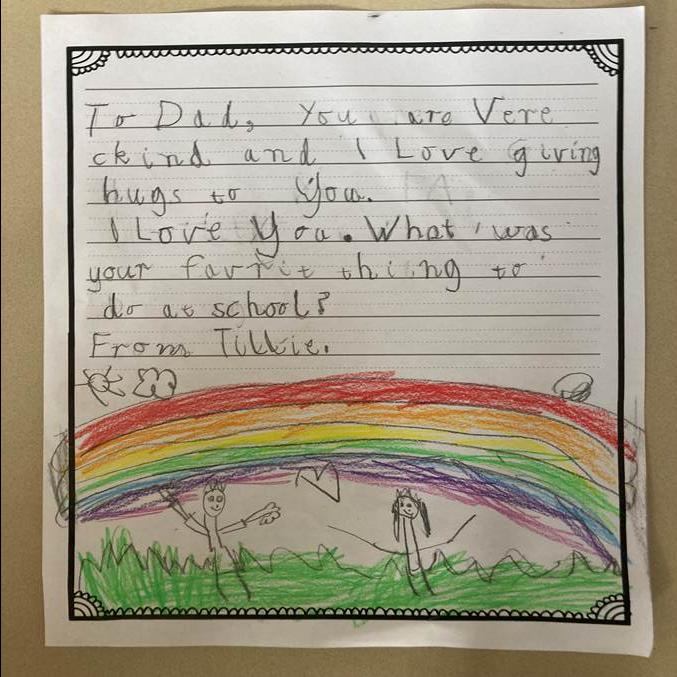 To Dad, You are Vere
ckind and I Love giving
hugs to You.
I Love You. What was
your favrit thing to
do at school?
From Tillie.